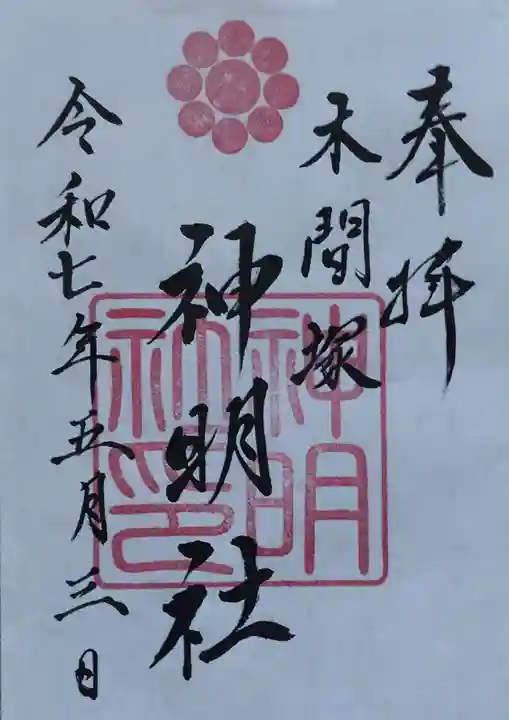 奉拝
木間塚
神明社
神明社印
令和七年五月三日